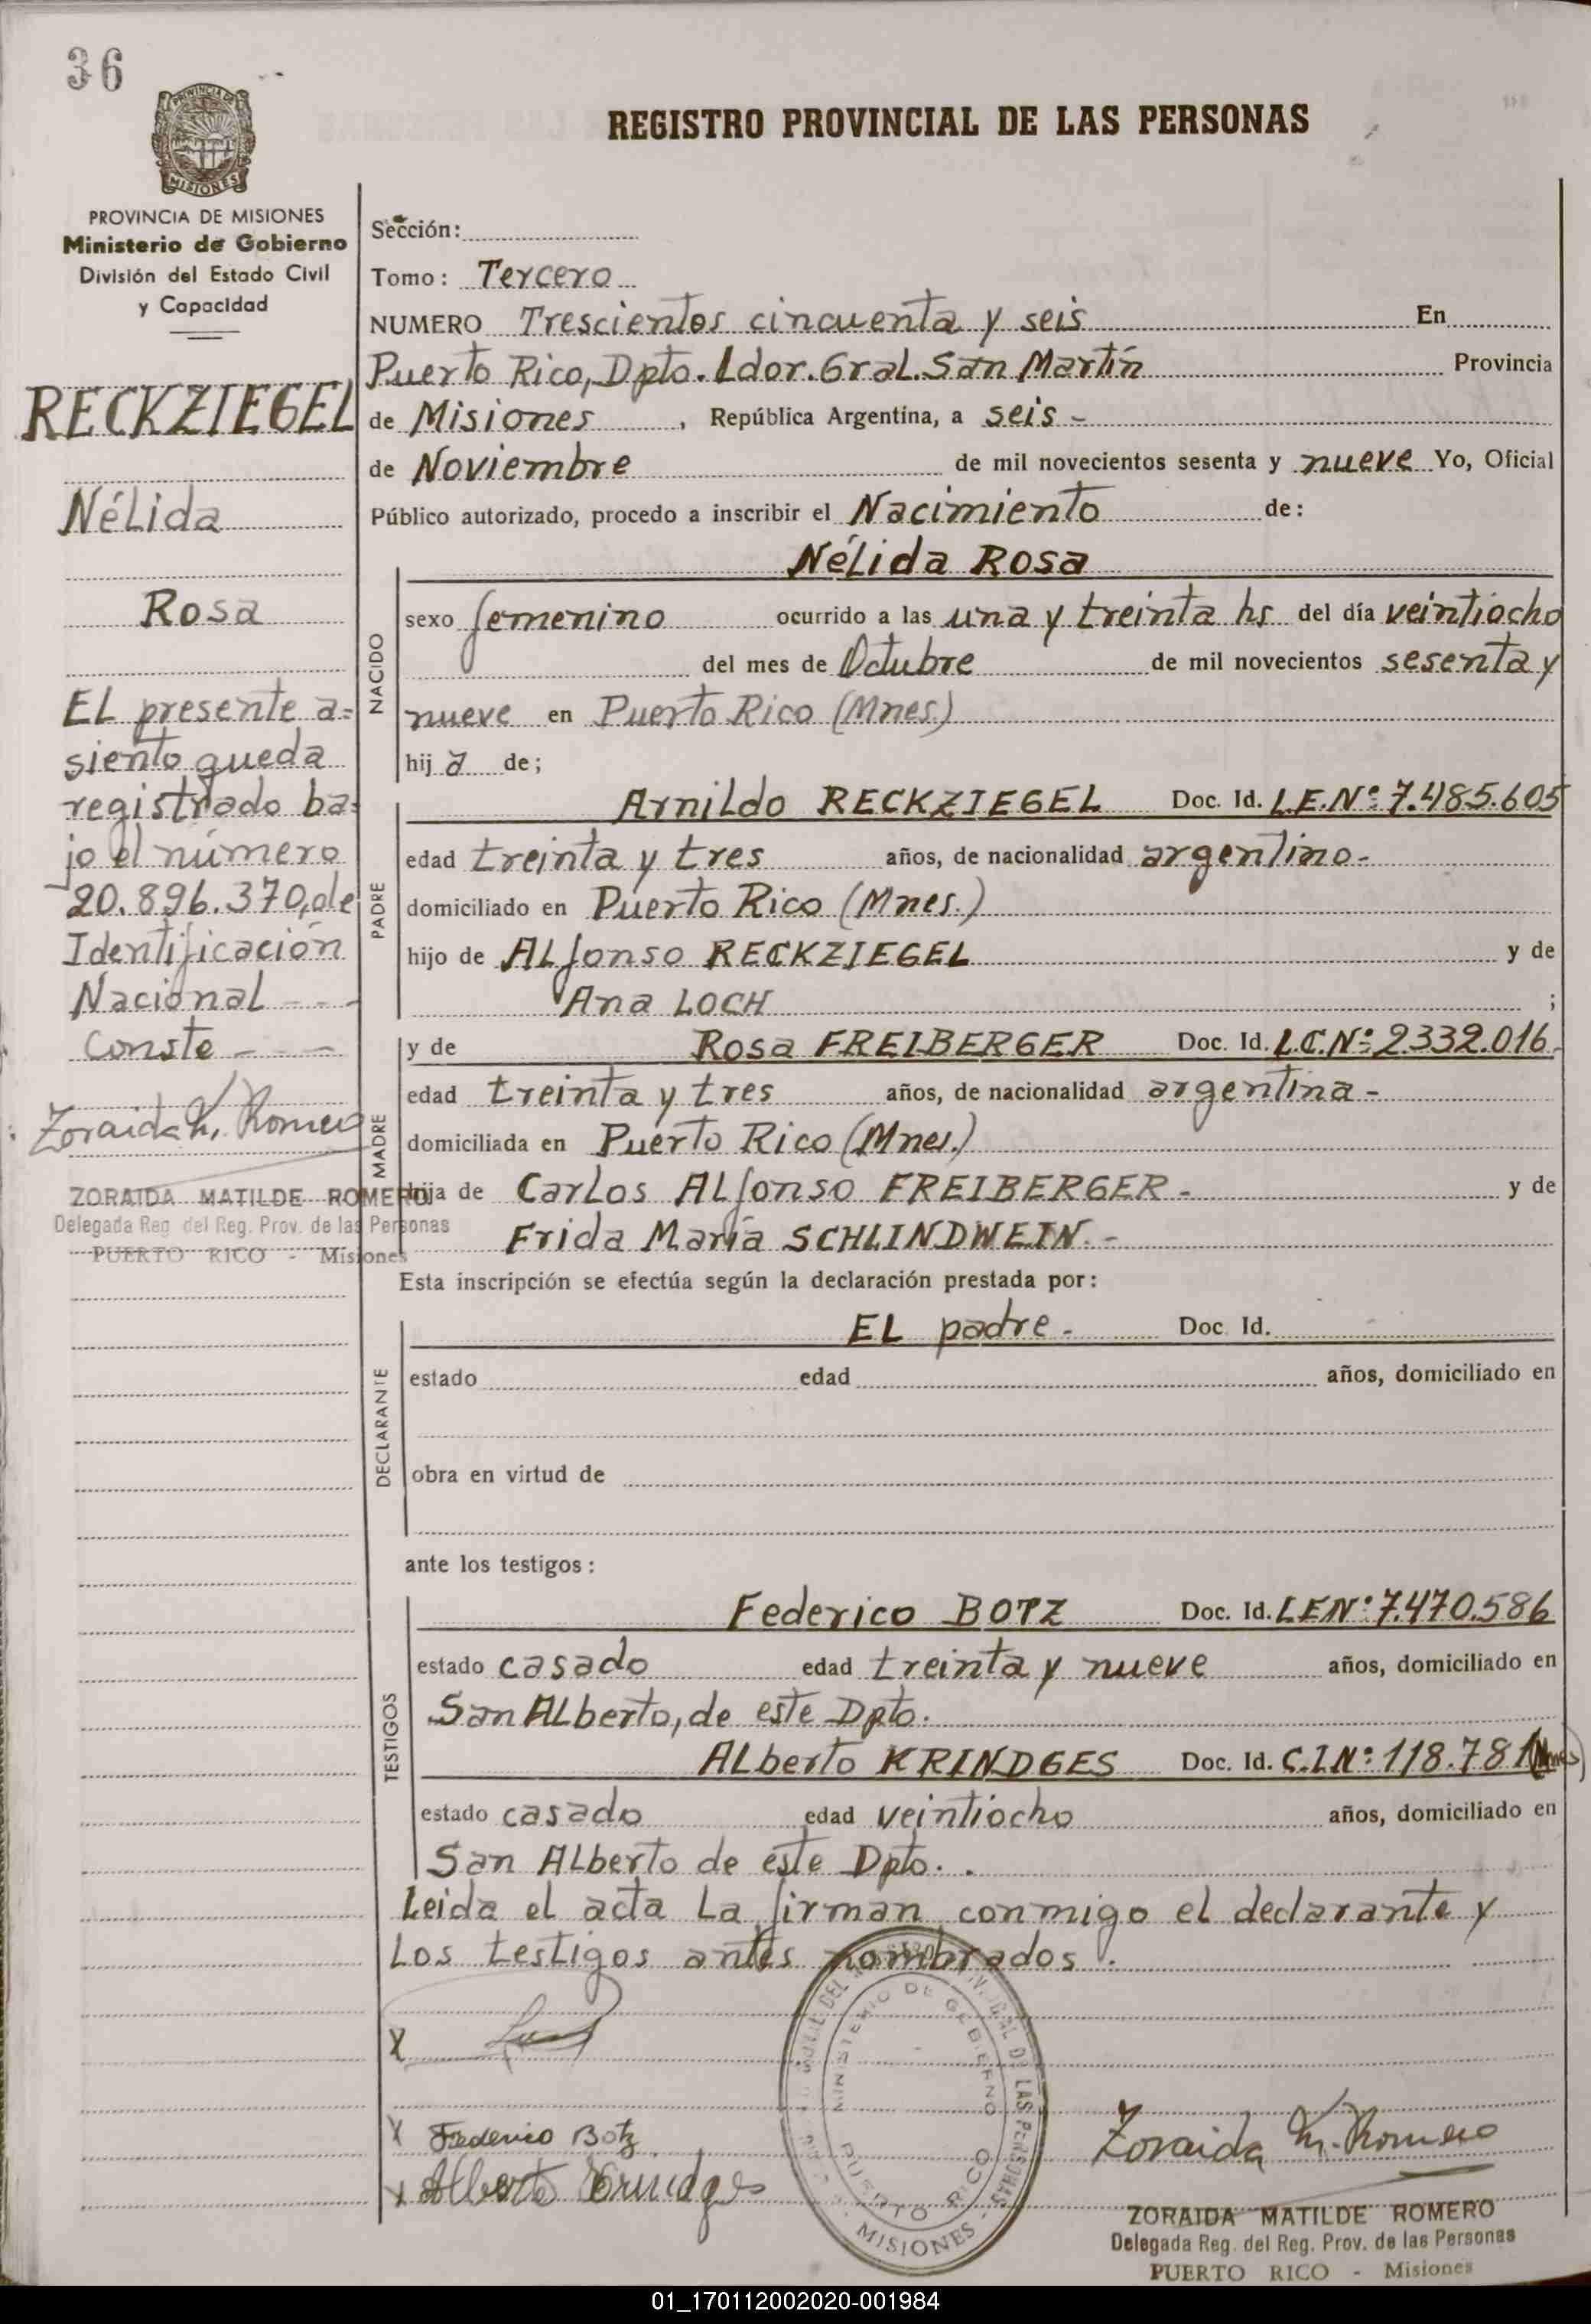 36
PROVINCIA DE
MISIONES
REGISTRO PROVINCIAL DE LAS PERSONAS
PROVINCIA DE MISIONES
Ministerio de Gobierno
División del Estado Civil
y Capacidad
RECKZIEGEL
Nélida
Rosa
El presente a=
siento queda
registrado ba=
jo el número
20.896.370, de
Identificación
Nacional - - -
Conste - - -
Zoraida M. Romero
ZORAIDA MATILDE ROMERO
Delegada Reg. del Reg. Prov. de las Personas
PUERTO RICO - Misiones
Sección:
Tomo: Tercero
NUMERO Trescientos cincuenta y seis En
Puerto Rico, Dpto. Ldor. Gral. San Martín Provincia
de Misiones, República Argentina, a seis -
de Noviembre de mil novecientos sesenta y nueve Yo, Oficial
Público autorizado, procedo a inscribir el Nacimiento de:
NACIDO
Nélida Rosa
sexo femenino ocurrido a las una y treinta hs del día veintiocho
del mes de Octubre de mil novecientos sesenta y
nueve en Puerto Rico (Mnes.)
hij a de;
PADRE
Arnildo RECKZIEGEL Doc. Id. L.E.Nº: 7.485.605
edad treinta y tres años, de nacionalidad argentino.-
domiciliado en Puerto Rico (Mnes.)
hijo de Alfonso RECKZIEGEL y de
Ana LOCH ;
MADRE
y de Rosa FREIBERGER Doc. Id. L.C.Nº: 2332.016.
edad treinta y tres años, de nacionalidad argentina -
domiciliada en Puerto Rico (Mnes.)
hija de Carlos Alfonso FREIBERGER - y de
Frida María SCHLINDWEIN. -
Esta inscripción se efectúa según la declaración prestada por:
DECLARANTE
El padre - Doc. Id.
estado edad años, domiciliado en
obra en virtud de
ante los testigos:
TESTIGOS
Federico BOTZ Doc. Id. LENº: 7.470.586
estado casado edad treinta y nueve años, domiciliado en
San Alberto, de este Dpto.
Alberto KRINDGES Doc. Id. C.I.Nº: 118.781 (Mnes)
estado casado edad veintiocho años, domiciliado en
San Alberto de este Dpto. .
Leida el acta la firman conmigo el declarante y
los testigos antes nombrados.
X
X Federico Botz
X Alberto Krindges
MINISTERIO DE GOBIERNO
PUERTO RICO
- MISIONES -
Zoraida M. Romero
ZORAIDA MATILDE ROMERO
Delegada Reg. del Reg. Prov. de las Personas
PUERTO RICO - Misiones
01_170112002020-001984